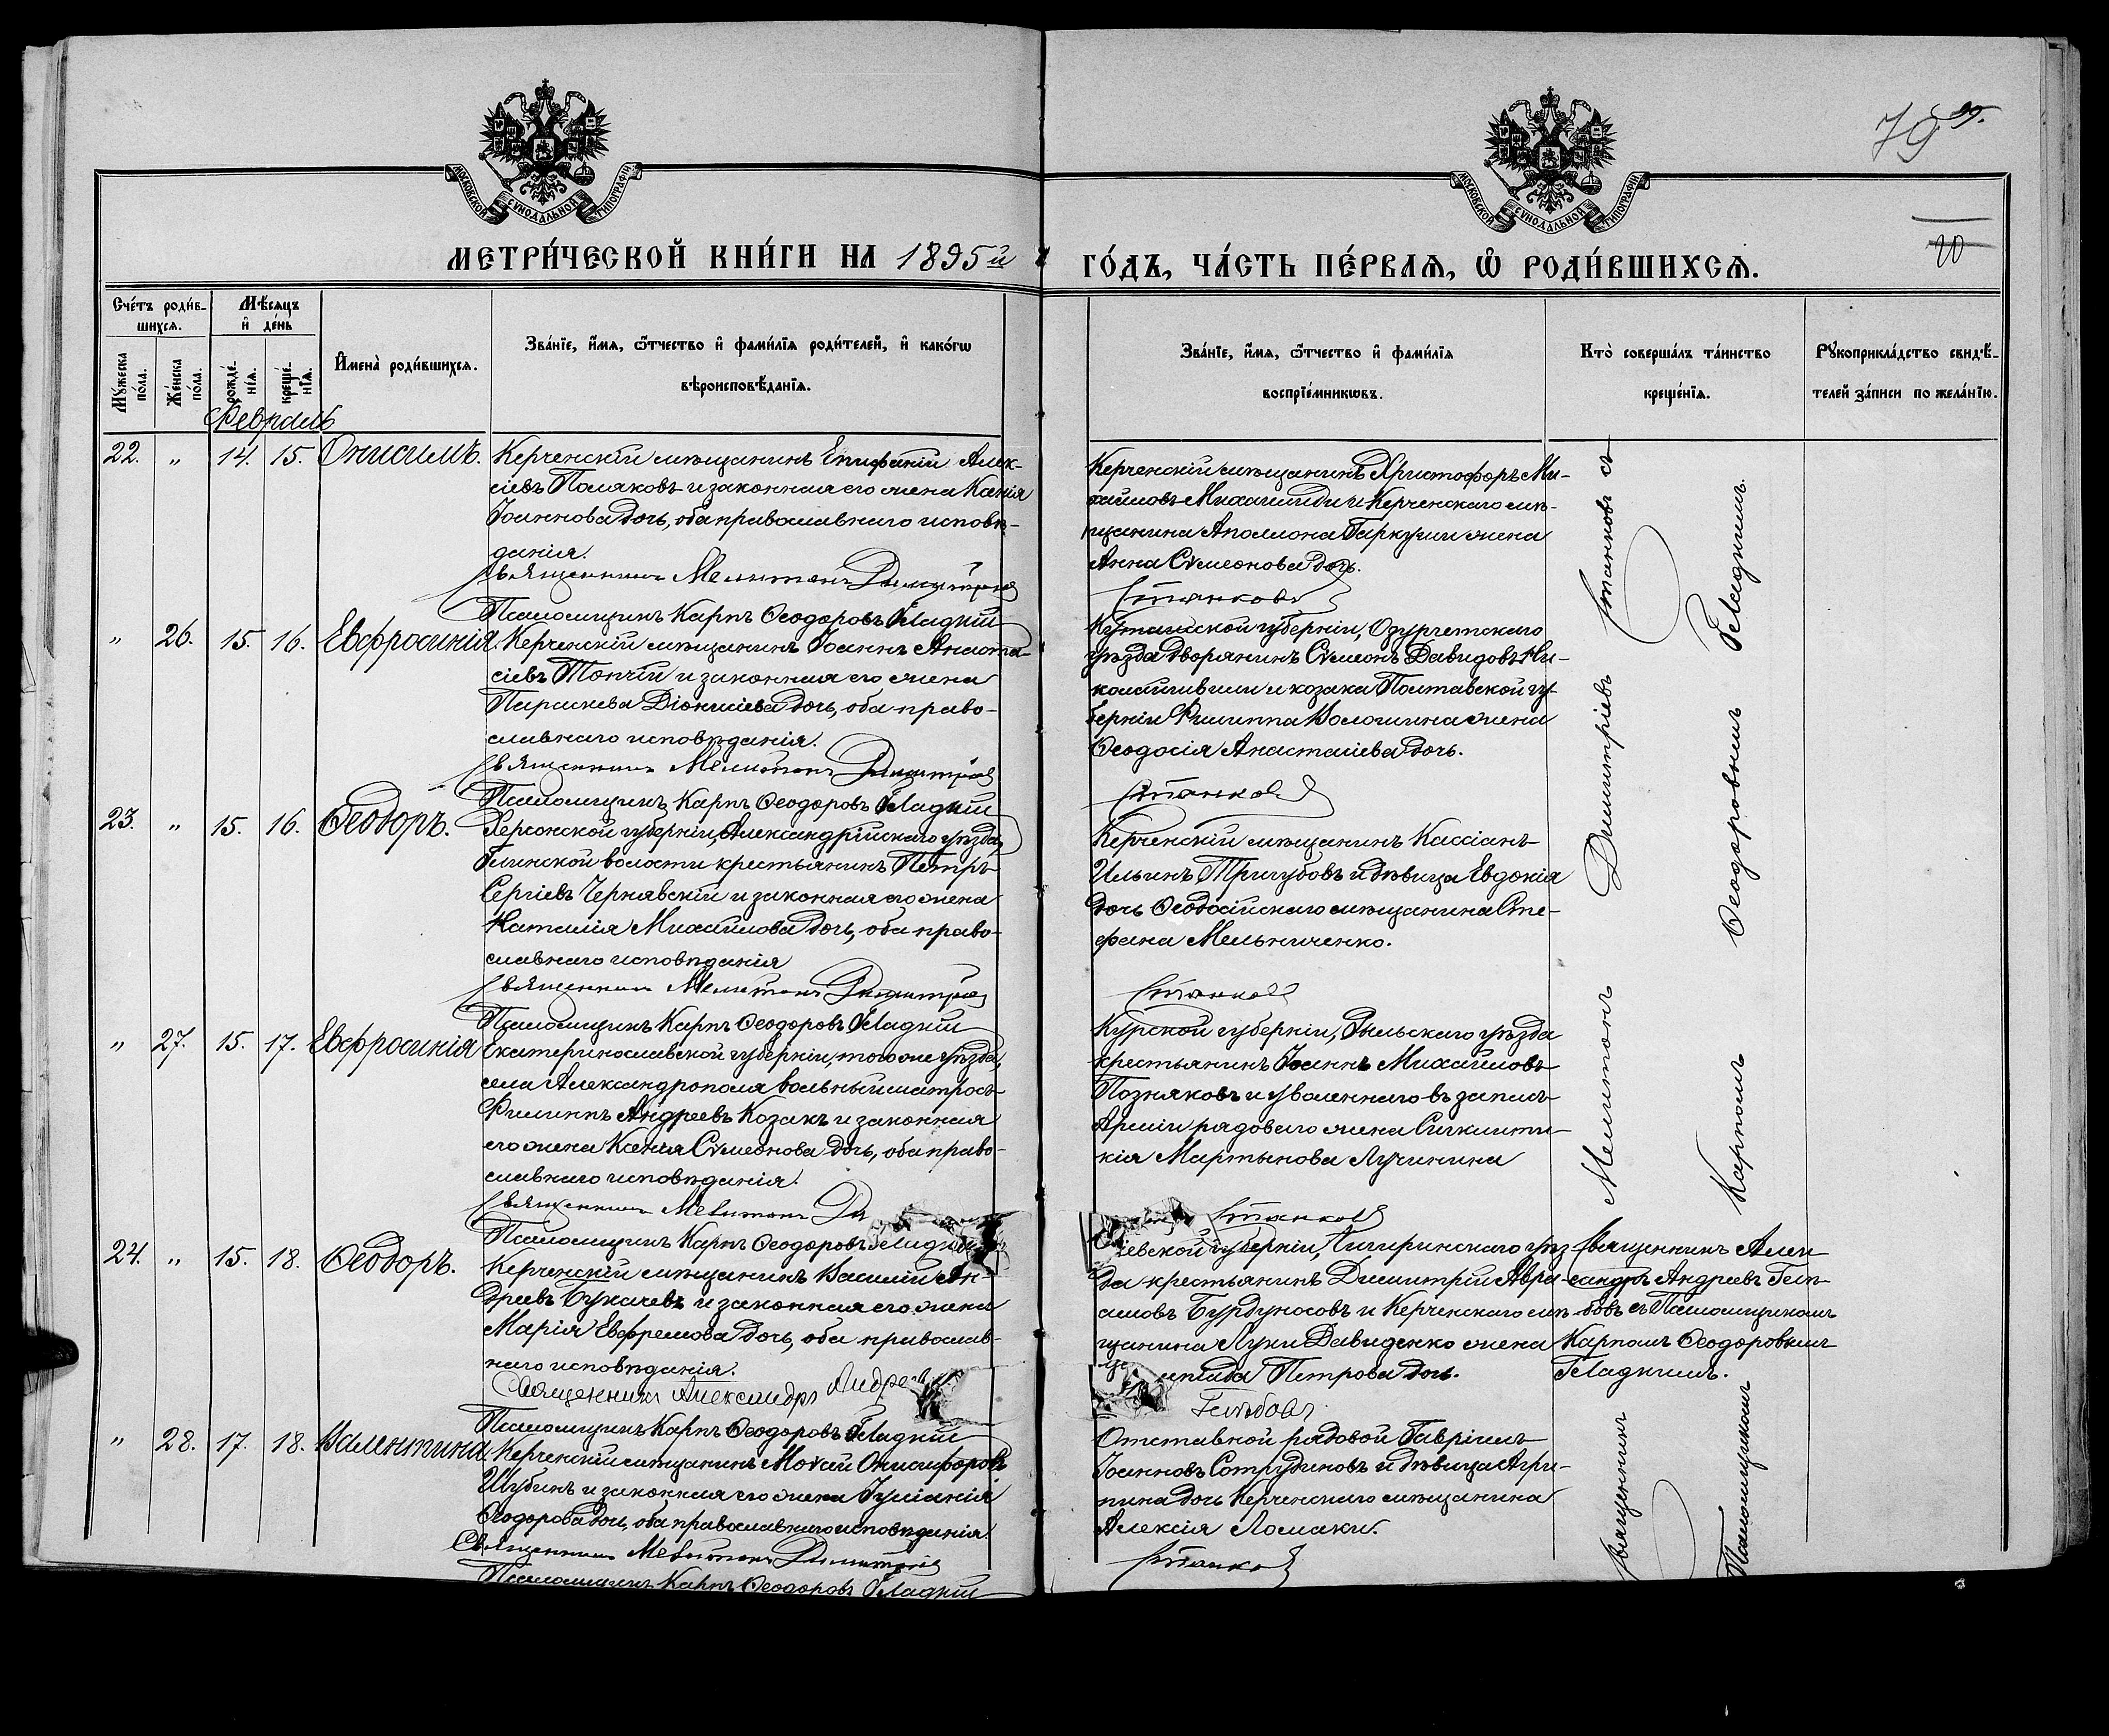 79 99.
МОСКОВСКОЙ СѴНОДАЛЬНОЙ ТИПОГРАФІИ
МОСКОВСКОЙ СѴНОДАЛЬНОЙ ТИПОГРАФІИ
20
МЕТРИ́ЧЕСКОЙ КНИ́ГИ НА 1895й
ГО́ДЪ, ЧА́СТЬ ПЕ́РВАЯ, Ѡ҆ РОДИ́ВШИХСЯ.
Сче́тъ роди́в-
шихся.
Мѣ́сяцъ
и҆ де́нь
Му́жеска по́ла.
Же́нска по́ла.
рожде́нїя.
креще́нїя.
И҆мена̀ роди́вшихся.
Зва́нїе, и҆́мя, ѻ҆́тчество и҆ фами́лїя роди́телей, и҆ како́гѡ
вѣроисповѣ́данїя.
Зва́нїе, и҆́мя, ѻ҆́тчество и҆ фами́лїя
воспрїе́мникѡвъ.
Кто̀ соверша́лъ та́инство
креще́нїя.
Рꙋкоприкла́дство свидѣ́-
телей за́писи по жела́нїю.
Февраль
22. „ 14. 15. Онисимъ.
Керченскій мѣщанинъ Епифаній Алек-
сіевъ Поляковъ и законная его жена Ксенія
Іоаннова дочь, оба православнаго исповѣ-
данія.
Священникъ Мелитонъ Димитріев
Псаломщикъ Карпъ Ѳеодоровъ Гладкій
Керченскій мѣщанинъ Христофоръ Ми-
хайловъ Михаилиди и Керченскаго мѣ-
щанина Аполлона Гаркуши жена
Анна Сѵмеонова дочь.
Станковъ
„ 26. 15. 16. Евфросинія.
Керченскій мѣщанинъ Іоаннъ Анаста-
сіевъ Топчій и законная его жена
Параскева Діонисіева дочь, оба право-
славнаго исповѣданія.
Священникъ Мелитонъ Димитріев
Псаломщикъ Карпъ Ѳеодоровъ Гладкій
Кутаисской губерніи, Озургетскаго
уѣзда дворянинъ Сѵмеонъ Давидовъ Ни-
колайшвили и козака Полтавской гу-
берніи Филиппа Волошина жена
Ѳеодосія Анастасіева дочь.
Станковъ
23. „ 15. 16. Ѳеодоръ.
Херсонской губерніи, Александрійскаго уѣзда,
Глинской волости крестьянинъ Петръ
Сергіевъ Чернявскій и законная его жена
Наталія Михайлова дочь, оба право-
славнаго исповѣданія
Священникъ Мелитонъ Димитріев
Псаломщикъ Карпъ Ѳеодоровъ Гладкій
Керченскій мѣщанинъ Кассіанъ
Ильинъ Тригубовъ и дѣвица Евдокія
дочь Ѳеодосійскаго мѣщанина Сте-
фана Мельниченко.
Станковъ
„ 27. 15. 17. Евфросинія
Екатеринославской губерніи, того же уѣзда,
села Александрополя вольный матросъ
Филиппъ Андреевъ Козакъ и законная
его жена Ксенія Сѵмеонова дочь, оба право-
славнаго исповѣданія.
Священникъ Мелитонъ Ди
Псаломщикъ Карпъ Ѳеодоровъ Гладкій
Курской губерніи, Рыльскаго уѣзда
крестьянинъ Іоаннъ Михайловъ
Позняковъ и уволеннаго въ запасъ
Арміи рядового жена Сигклити-
кія Мартынова Лучинина
Станковъ
24. „ 15. 18. Ѳеодоръ.
Керченскій мѣщанинъ Василій Ан-
дреевъ Букачевъ и законная его жена
Марія Евфремова дочь, оба православ-
наго исповѣданія.
Священникъ Александръ Андреев
Псаломщикъ Карпъ Ѳеодоровъ Гладкій
Кіевской губерніи, Чигиринскаго уѣз-
да крестьянинъ Димитрій Авра-
амовъ Бурдуносовъ и Керченскаго мѣ-
щанина Луки Давиденко жена
Петрова дочь.
Глѣбовъ
Священникъ Алек
сандръ Андреевъ Глѣ-
бовъ съ Псаломщикомъ
Карпомъ Ѳеодоровымъ
Гладкимъ.
„ 28. 17. 18. Валентина.
Керченскій мѣщанинъ Моѵсей Онисифоровъ
Шубинъ и законная его жена Іуліанія
Ѳеодорова дочь, оба православнаго исповѣданія.
Священникъ Мелитонъ Димитріев
Псаломщикъ Карпъ Ѳеодоровъ Гладкій
Отставной рядовой Гавріилъ
Іоанновъ Сотрудиновъ и дѣвица Агри-
пина дочь Керченскаго мѣщанина
Алексія Ломаки.
Станковъ
Священникъ Мелитонъ Димитріевъ Станковъ съ
Псаломщикомъ Карпомъ Ѳеодоровымъ Гладкимъ.